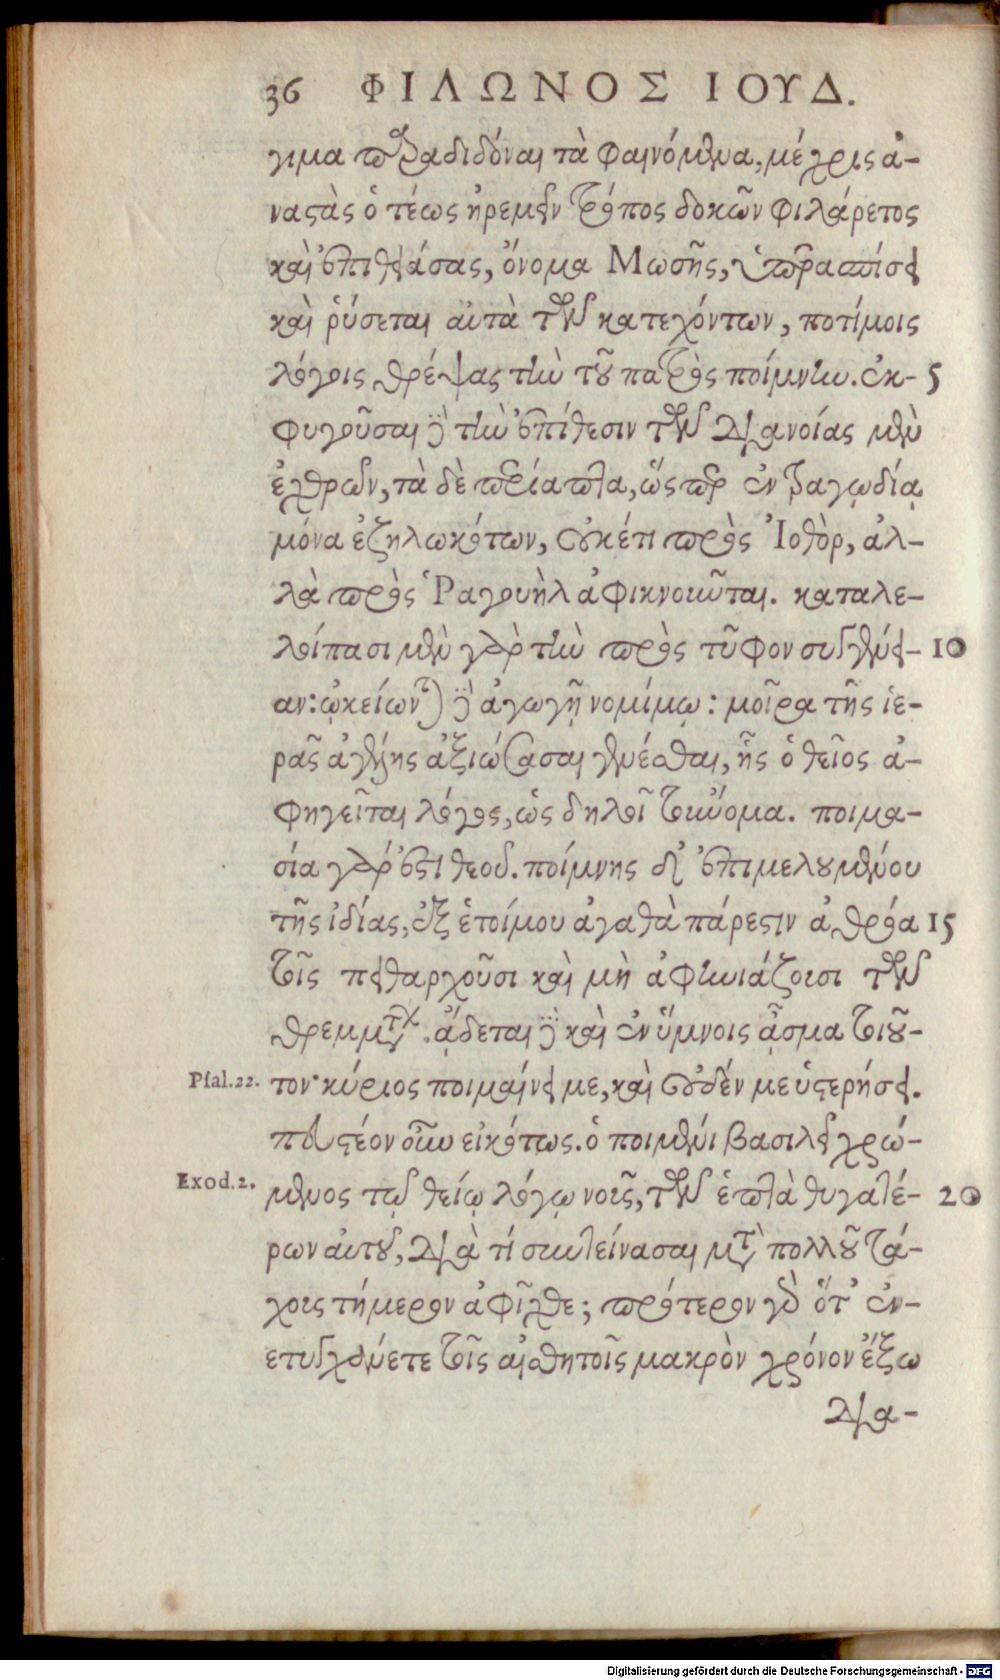 36 ΦΙΛΩΝΟΣ ΙΟΥΔ.
γιμα παραδιδόναι τὰ φαινόμενα, μέχρις ἀ-
ναστὰς ὁ τέως ἠρεμεῖν τρόπος δοκῶν φιλάρετος
καὶ ἐπιθειάσας, ὄνομα Μωσῆς, ὑπερασπίσει
καὶ ῥύσεται αὐτὰ τῶν κατεχόντων, ποτίμοις
λόγοις θρέψας τὴν τοῦ πατρὸς ποίμνην. ἐκ- 5
φυγοῦσαι δὲ τὴν ἐπίθεσιν τῶν διανοίας μὲν
ἐχθρῶν, τὰ δὲ περίαπτα, ὥσπερ ἐν τραγῳδίᾳ
μόνα ἐζηλωκότων, οὐκέτι πρὸς Ἰοθὸρ, ἀλ-
λὰ πρὸς Ῥαγουὴλ ἀφικνοῦνται. καταλε-
λοίπασι μὲν γὰρ τὴν πρὸς τῦφον συγγένει- 10
αν: ᾠκείωνται δὲ ἀγωγῇ νομίμῳ: μοῖρα τῆς ἱε-
ρᾶς ἀγέλης ἀξιώσασαι γενέσθαι, ἧς ὁ θεῖος ἀ-
φηγεῖται λόγος, ὡς δηλοῖ τοὔνομα. ποιμα-
σία γάρ ἐστι θεοῦ. ποίμνης δ' ἐπιμελουμένου
τῆς ἰδίας, ἐξ ἑτοίμου ἀγαθὰ πάρεστιν ἀθρόα 15
τοῖς πειθαρχοῦσι καὶ μὴ ἀφηνιάζουσι τῶν
θρεμμάτων. ᾄδεται δὲ καὶ ἐν ὕμνοις ᾆσμα τοιοῦ-
Psal.22. τον· κύριος ποιμαίνει με, καὶ οὐδέν με ὑστερήσει.
πευστέον οὖν εἰκότως. ὁ ποιμένι βασιλεῖ χρώ-
Exod.2. μενος τῷ θείῳ λόγῳ νοῦς, τῶν ἑπτὰ θυγατέ- 20
ρων αὐτοῦ, διὰ τί συντείνασαι μετὰ πολλοῦ τά-
χους τήμερον ἀφῖχθε; πρότερον γὰρ ὅτ' ἐν-
ετυγχάνετε τοῖς αἰσθητοῖς μακρὸν χρόνον ἔξω
δια-
Digitalisierung gefördert durch die Deutsche Forschungsgemeinschaft - DFG